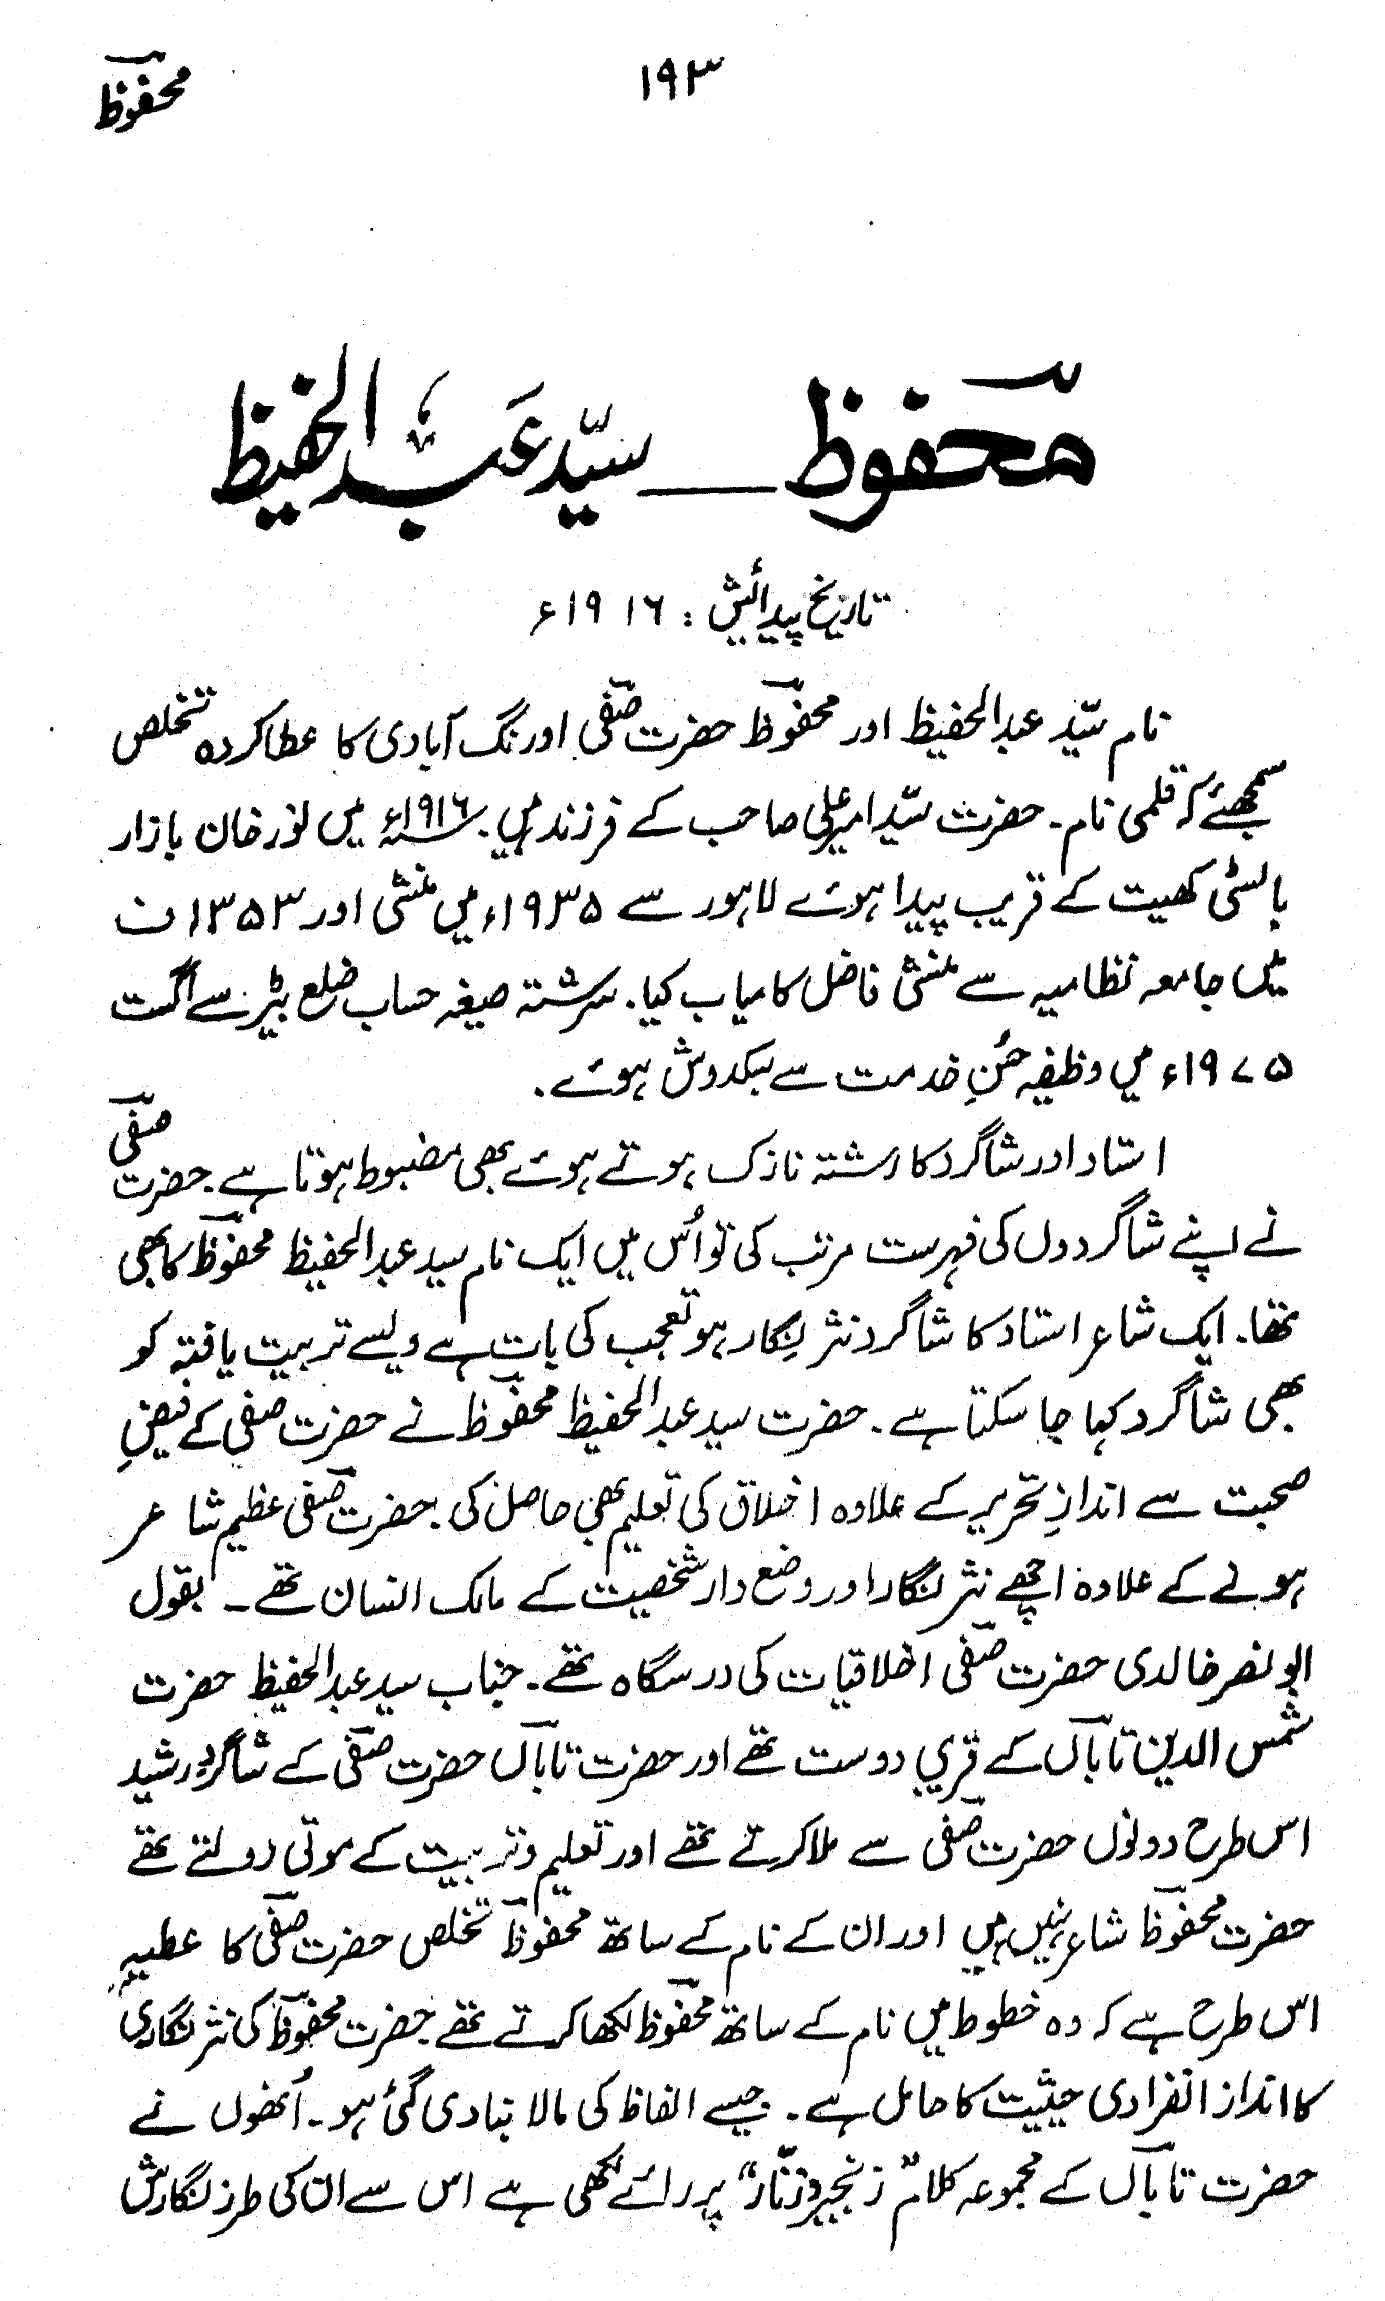 ۱۹۳
محفوظؔ
محفوظؔ ــــ سیّد عبدالحفیظ
تاریخ پیدائش : ۱۹۱۶ء
نام سیّد عبدالحفیظ اور محفوظؔ حضرت صفیؔ اورنگ آبادی کا عطا کردہ تخلص
سمجھئے کہ قلمی نام۔ حضرت سیّد امیر علی صاحب کے فرزند ہیں۔ ۱۹۱۶ء میں نور خان بازار
بالسٹی کھیت کے قریب پیدا ہوئے لاہور سے ۱۹۳۵ء میں منشی اور ۱۳۵۳ ف
میں جامعہ نظامیہ سے منشی فاضل کامیاب کیا۔ سررشتہ صیغہ حساب ضلع بیڑ سے اگست
۱۹۷۵ء میں وظیفہ حُسنِ خدمت سے سبکدوش ہوئے۔
استاد اور شاگرد کا رشتہ نازک ہوتے ہوئے بھی مضبوط ہوتا ہے۔ حضرت صفیؔ
نے اپنے شاگردوں کی فہرست مرتب کی تو اُس میں ایک نام سید عبدالحفیظ محفوظؔ کا بھی
تھا۔ ایک شاعر استاد کا شاگرد نثر نگار ہو تعجب کی بات ہے ویسے تربیت یافتہ کو
بھی شاگرد کہا جا سکتا ہے۔ حضرت سید عبدالحفیظ محفوظؔ نے حضرت صفی کے فیضِ
صحبت سے اندازِ تحریر کے علاوہ اخلاق کی تعلیم بھی حاصل کی۔ حضرت صفیؔ عظیم شاعر
ہونے کے علاوہ اچھے نثر نگار اور وضع دار شخصیت کے مالک انسان تھے۔ بقول
ابو نصر خالدی حضرت صفیؔ اخلاقیات کی درسگاہ تھے۔ جناب سید عبدالحفیظ حضرت
شمس الدین تاباںؔ کے قریبی دوست تھے اور حضرت تاباںؔ حضرت صفیؔ کے شاگردِ رشید
اس طرح دونوں حضرت صفیؔ سے ملا کرتے تھے اور تعلیم و تربیت کے موتی رولتے تھے
حضرت محفوظؔ شاعر نہیں ہیں اور ان کے نام کے ساتھ محفوظؔ تخلص حضرت صفیؔ کا عطیہ
اس طرح ہے کہ وہ خطوط میں نام کے ساتھ محفوظؔ لکھا کرتے تھے۔ حضرت محفوظؔ کی نثر نگاری
کا انداز انفرادی حیثیت کا حامل ہے۔ جیسے الفاظ کی مالا بنا دی گئی ہو۔ اُنھوں نے
حضرت تاباںؔ کے مجموعہ کلام "زنجیر و زنّار" پر رائے لکھی ہے اس سے ان کی طرز نگارش